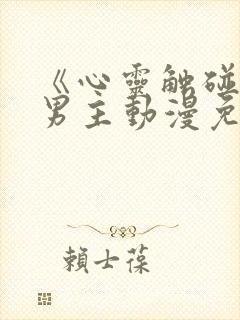 《心靈觸碰
男主動漫免
賴士葆